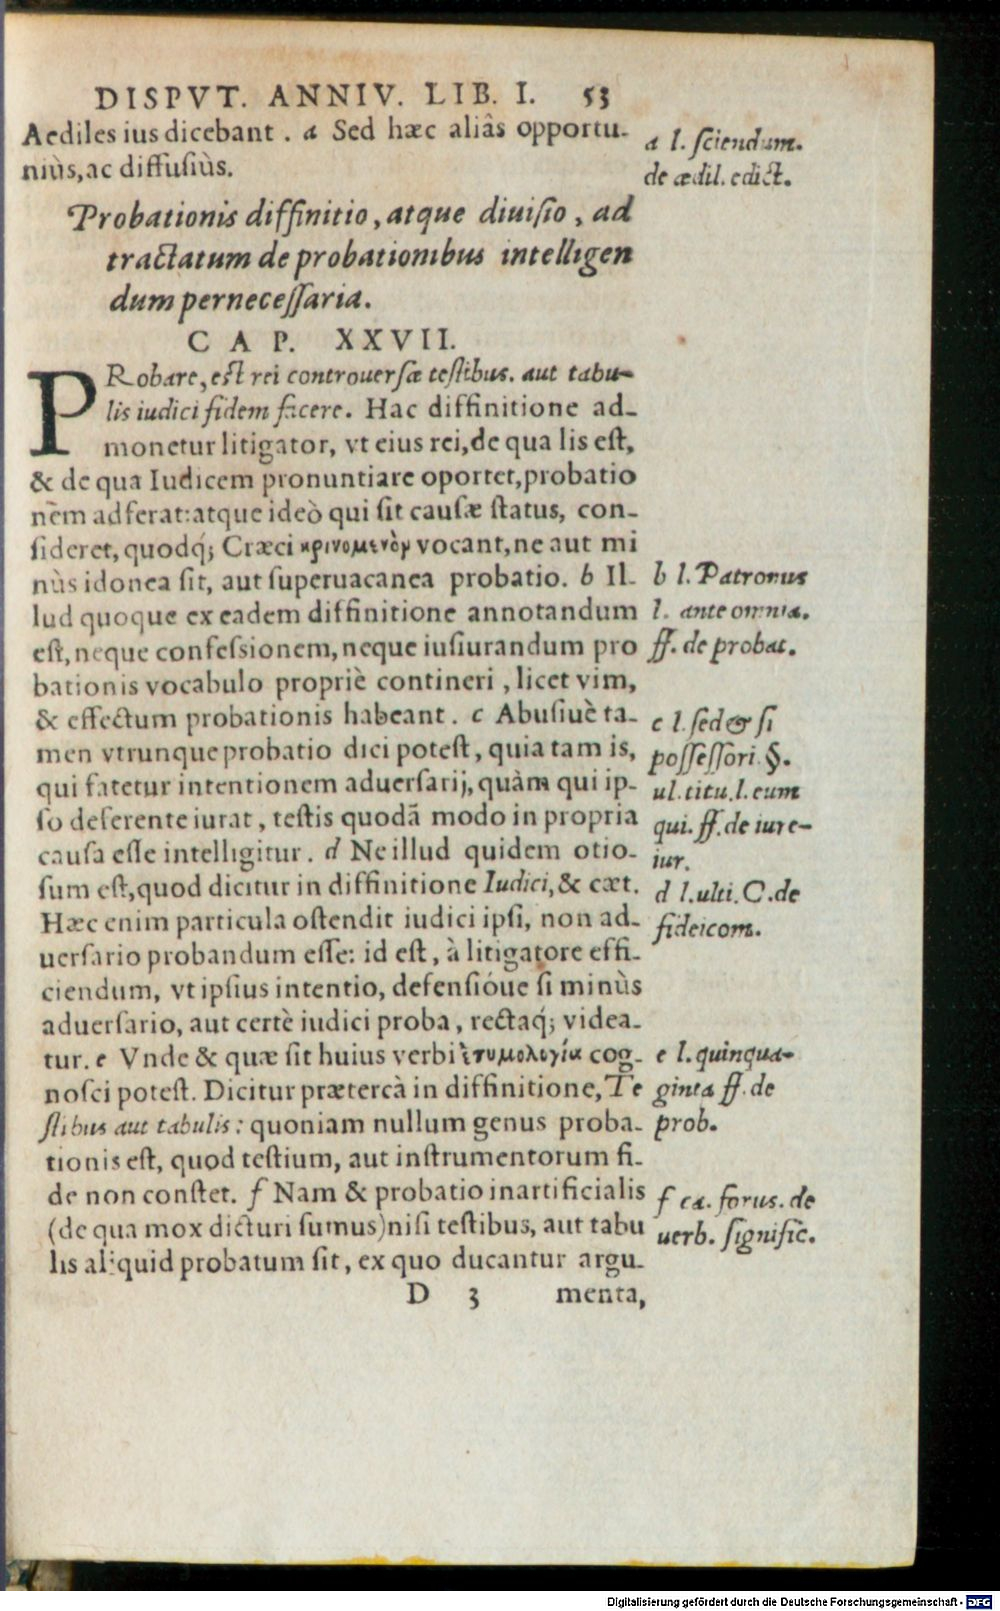 DISPVT. ANNIV. LIB. I. 53
Aediles ius dicebant. a Sed hæc aliâs opportu-
niùs, ac diffusiùs.
a l. sciendum.
de ædil. edict.
Probationis diffinitio, atque diuisio, ad
tractatum de probationibus intelligen
dum pernecessaria.
CAP. XXVII.
PRobare, est rei controuersæ testibus. aut tabu-
lis iudici fidem facere. Hac diffinitione ad-
monetur litigator, vt eius rei, de qua lis est,
& de qua Iudicem pronuntiare oportet, probatio
nẽm adferat: atque ideò qui sit causæ status, con-
sideret, quodq́; Græci κρινομενὸν vocant, ne aut mi
nùs idonea sit, aut superuacanea probatio. b Il-
lud quoque ex eadem diffinitione annotandum
est, neque confessionem, neque iusiurandum pro
bationis vocabulo propriè contineri, licet vim,
& effectum probationis habeant. c Abusiuè ta-
men vtrunque probatio dici potest, quia tam is,
qui fatetur intentionem aduersarij, quàm qui ip-
so deferente iurat, testis quodã modo in propria
causa esse intelligitur. d Ne illud quidem otio-
sum est, quod dicitur in diffinitione Iudici, & cæt.
Hæc enim particula ostendit iudici ipsi, non ad-
uersario probandum esse: id est, à litigatore effi-
ciendum, vt ipsius intentio, defensióue si minùs
aduersario, aut certè iudici proba, rectaq́; videa-
tur. e Vnde & quæ sit huius verbi ἐτυμολογία cog-
nosci potest. Dicitur prætereà in diffinitione, Te
stibus aut tabulis: quoniam nullum genus proba-
tionis est, quod testium, aut instrumentorum fi-
de non constet. f Nam & probatio inartificialis
(de qua mox dicturi sumus) nisi testibus, aut tabu
lis aliquid probatum sit, ex quo ducantur argu-
b l. Patronus
l. ante omnia.
ff. de probat.
c l. sed & si
possessori. §.
ul. titu. l. eum
qui. ff. de iure-
iur.
d l. ulti. C. de
fideicom.
e l. quinqua-
ginta ff. de
prob.
f ca. forus. de
uerb. signific.
D 3 menta,
Digitalisierung gefördert durch die Deutsche Forschungsgemeinschaft - DFG